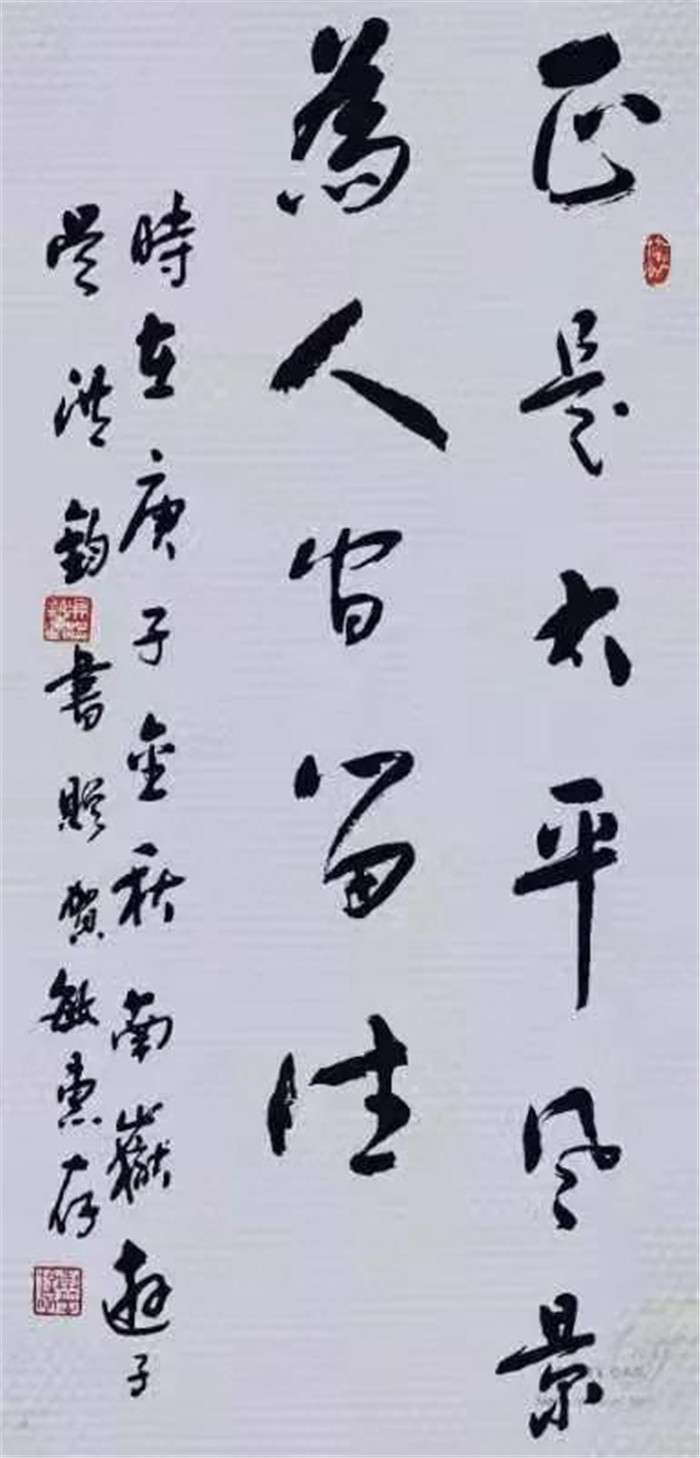 正是太平風景
為人間留住
時在庚子金秋南嶽遊子
吳洪鈞書贈賀敏惠存